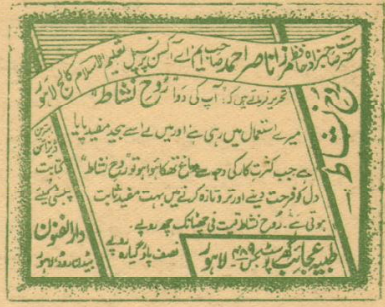 حضرت صاحبزادہ حافظ مرزا ناصر احمد صاحب ایم اے آکسن پرنسپل تعلیم الاسلام کالج لاہور
تحریر فرماتے ہیں کہ: آپ کی دوا "روح نشاط"
میرے استعمال میں رہی ہے اور میں نے اسے بیحد مفید پایا
ہے جب کثرت کار کی وجہ سے دماغ تھکا ہوا ہو تو "روح نشاط"
دل کو فرحت دینے اور تر و تازہ کرنے میں بہت مفید ثابت
ہوتی ہے۔ روح نشاط قیمت فی چھٹانک چھ روپے
نصف پاؤ گیارہ روپے
طبیہ عجائب گھر پوسٹ بکس ۲۸۹ لاہور
روح نشاط
بہترین
ڈیزائن
کتابت
پبلسٹی کیلئے
دار الفنون
لاہور